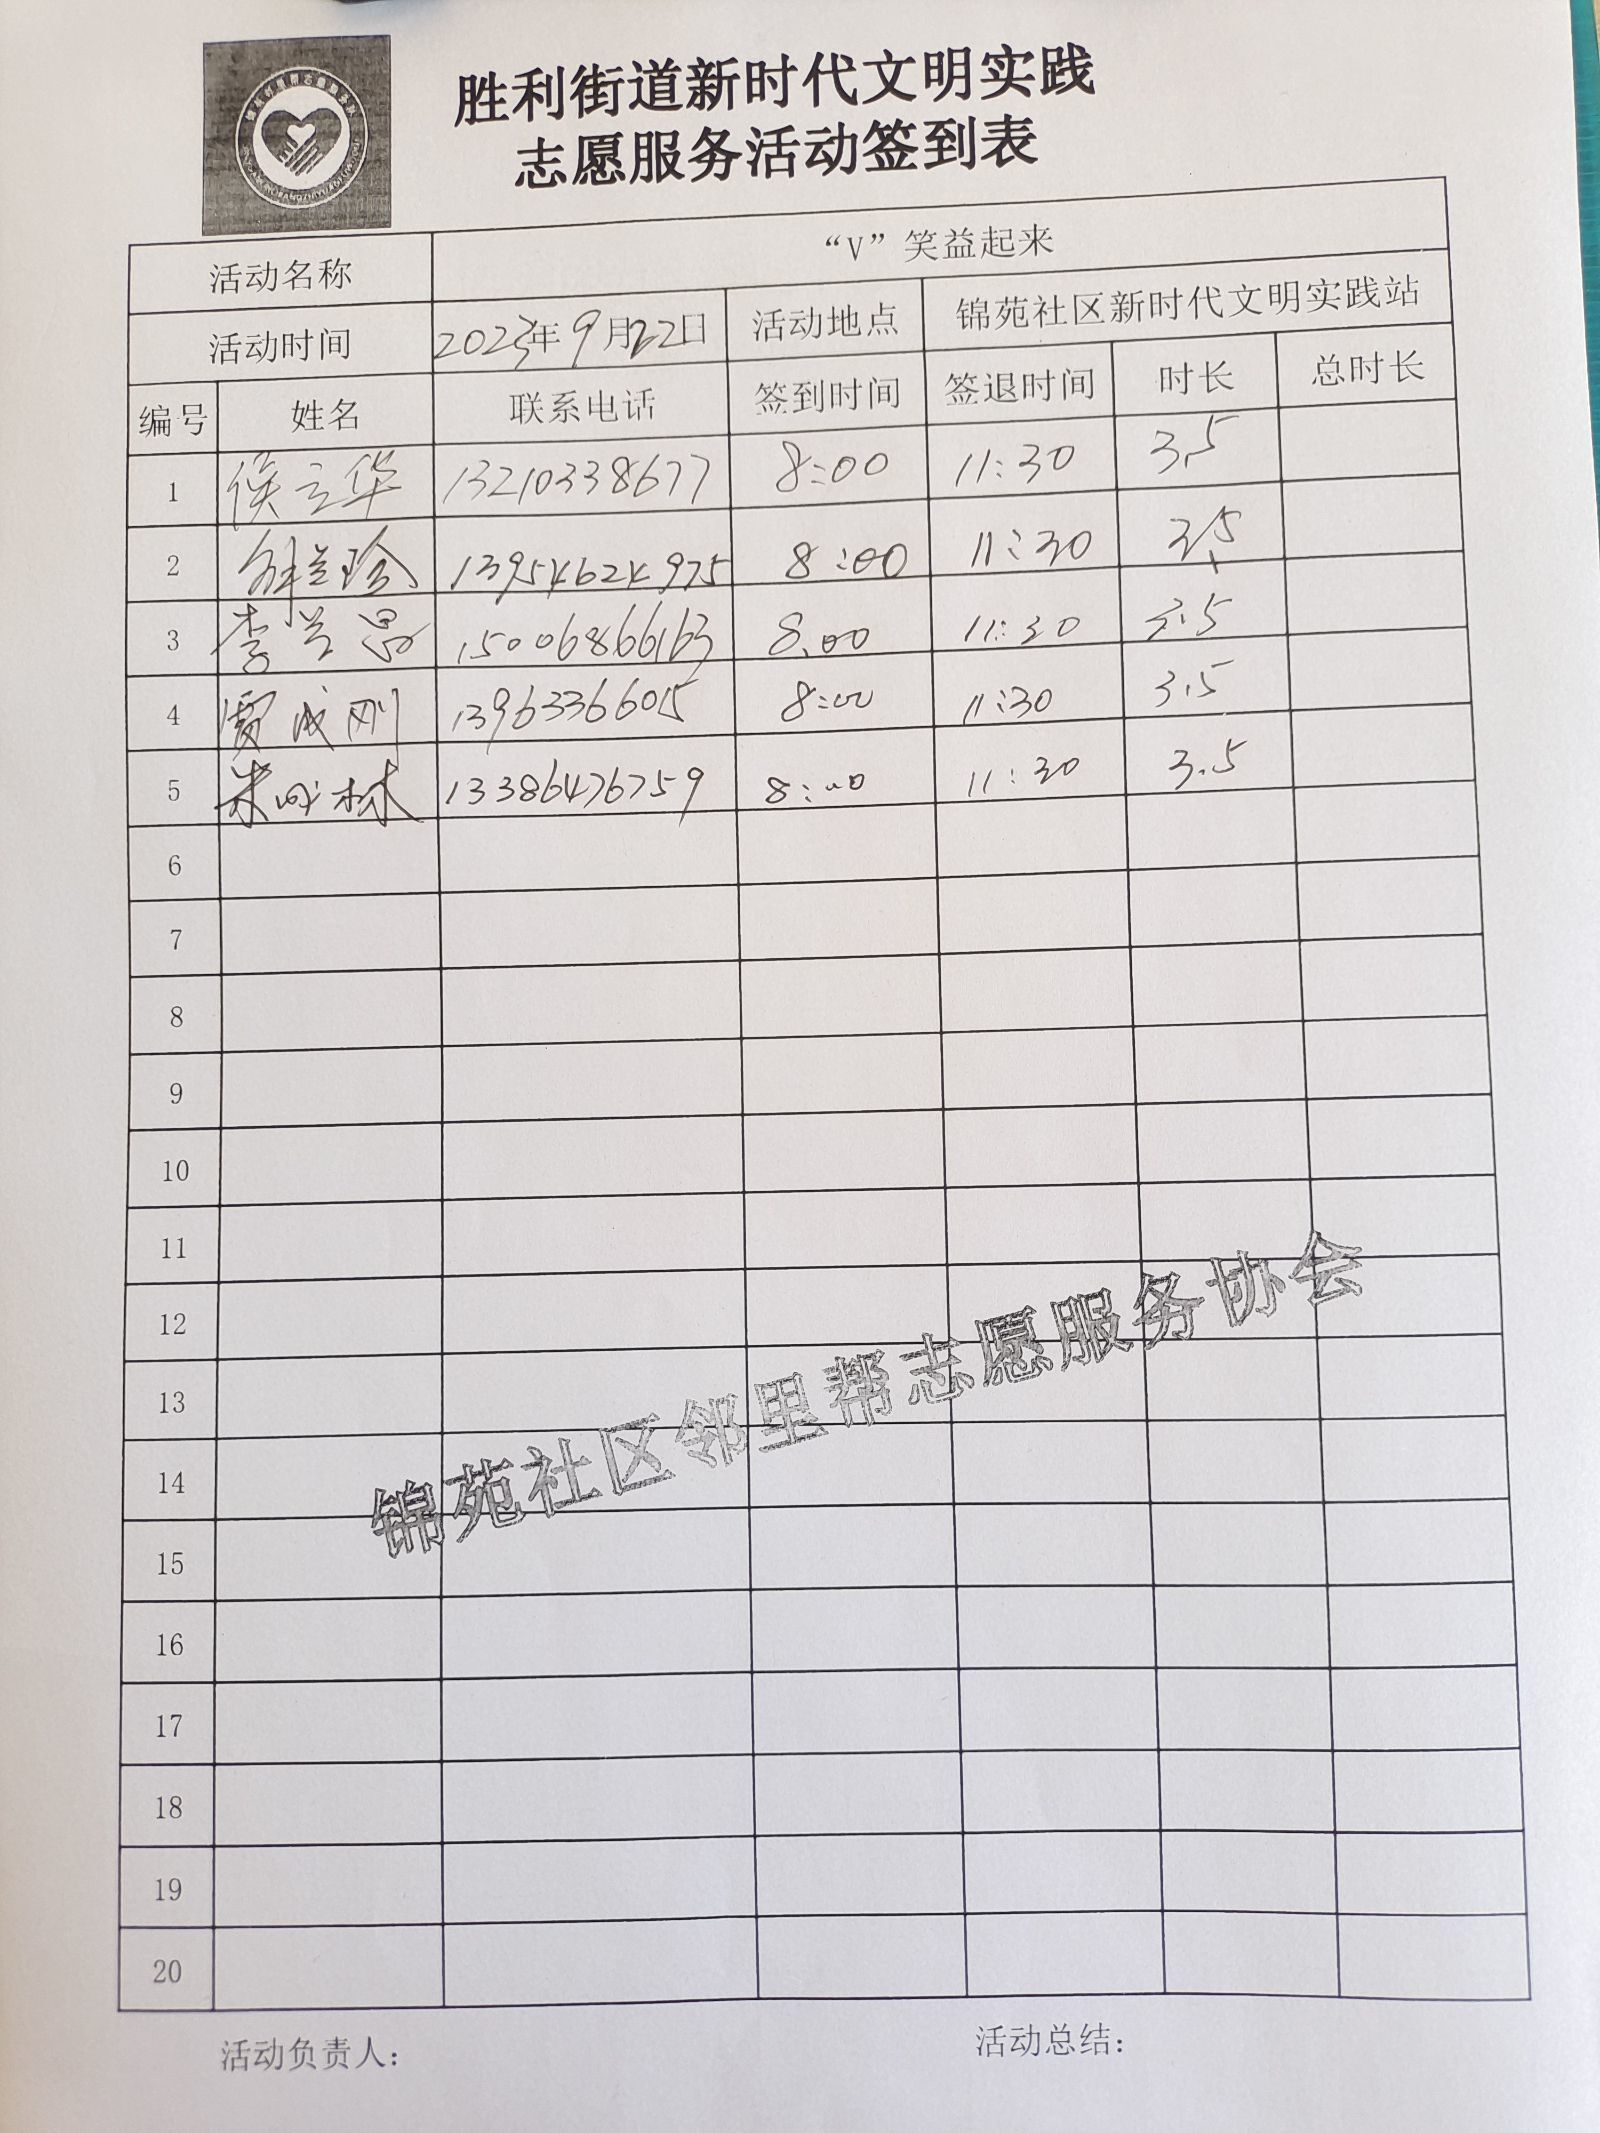 胜利街道新时代文明实践
志愿服务活动签到表
活动名称 “V”笑益起来
活动时间 2023年9月22日 活动地点 锦苑社区新时代文明实践站
编号 姓名 联系电话 签到时间 签退时间 时长 总时长
1 侯立华 13210338677 8:00 11:30 3.5
2 13954624975 8:00 11:30 3.5
3 李兰 15006866163 8.00 11:30 3.5
4 贾成刚 13963366015 8:00 11:30 3.5
5 朱成林 13386476759 8:00 11:30 3.5
6
7
8
9
10
11
12
13
14
15
16
17
18
19
20
锦苑社区邻里帮志愿服务协会
活动负责人： 活动总结：